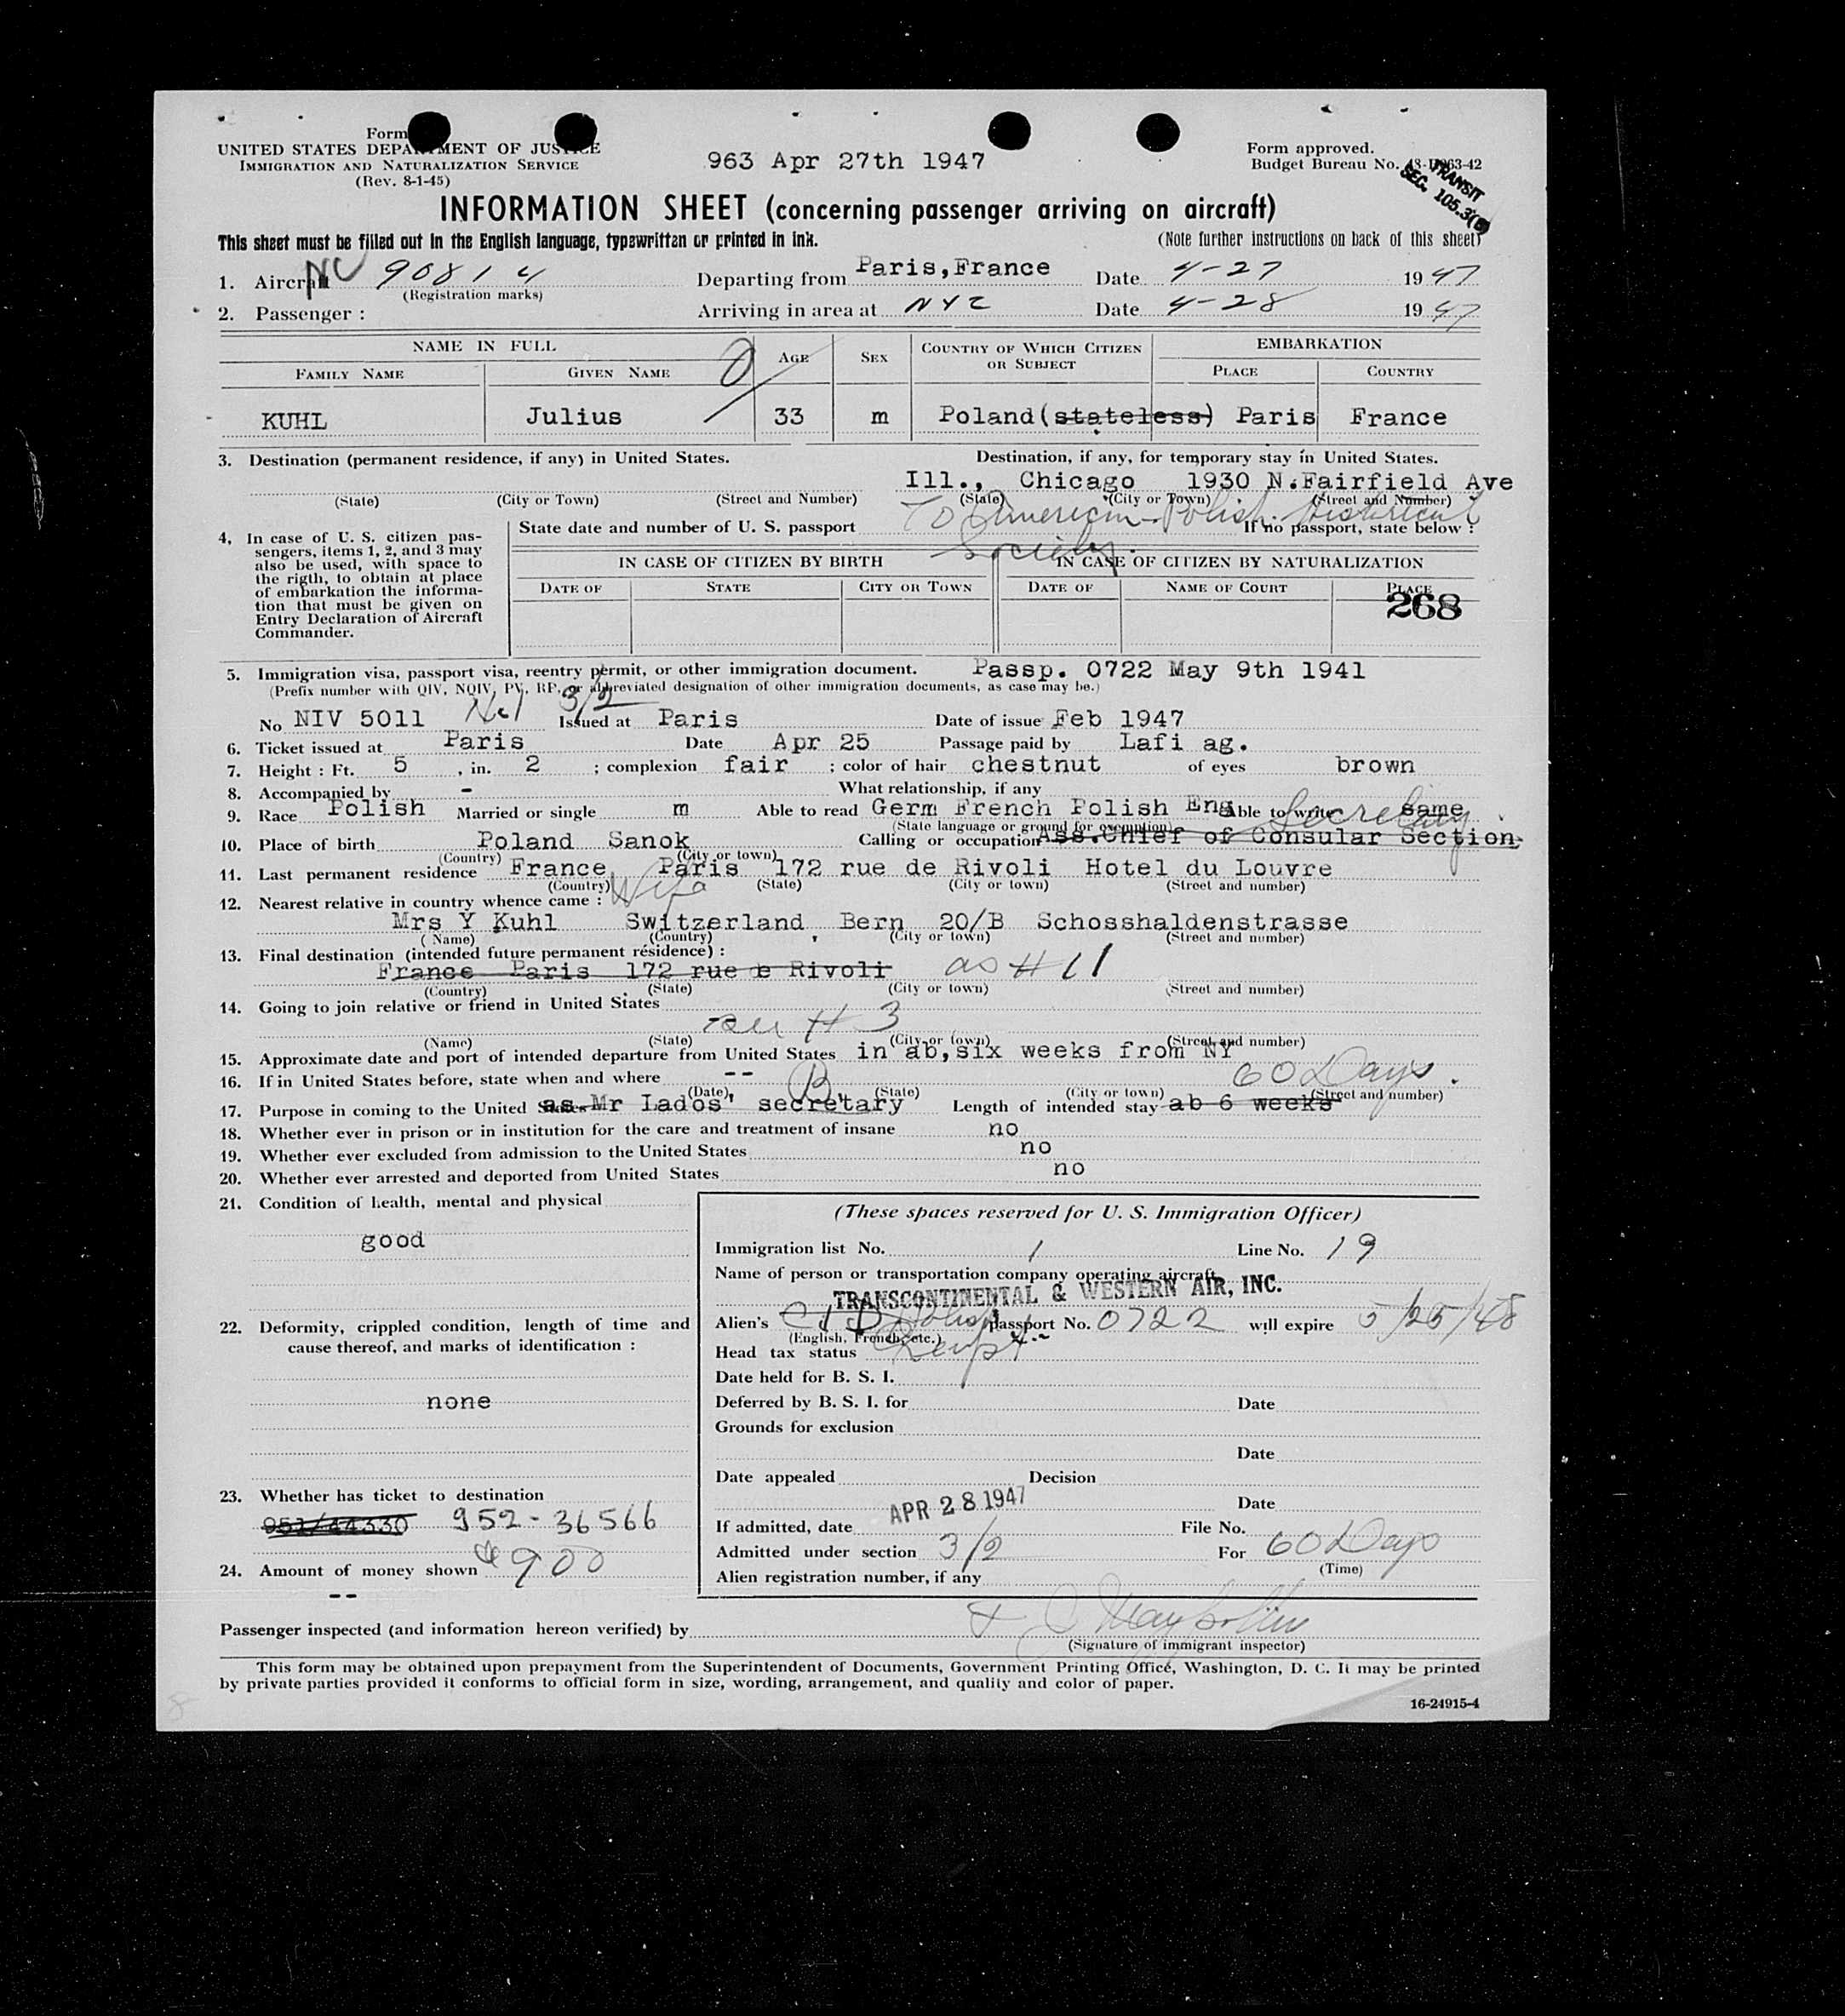 Form
UNITED STATES DEPARTMENT OF JUSTICE
IMMIGRATION AND NATURALIZATION SERVICE
(Rev. 8-1-45)
963 Apr 27th 1947
Form approved.
Budget Bureau No. 43-R063-42
TRANSIT
SEC. 105.3(B)
INFORMATION SHEET (concerning passenger arriving on aircraft)
This sheet must be filled out in the English language, typewritten or printed in ink. (Note further instructions on back of this sheet)
1. Aircraft NC 90814 Departing from Paris,France Date 4-27 1947
(Registration marks)
2. Passenger : Arriving in area at NYC Date 4-28 1947
NAME IN FULL AGE SEX COUNTRY OF WHICH CITIZEN OR SUBJECT EMBARKATION
FAMILY NAME GIVEN NAME PLACE COUNTRY
KUHL Julius 33 m Poland(stateless) Paris France
3. Destination (permanent residence, if any) in United States. Destination, if any, for temporary stay in United States.
Ill., Chicago 1930 N.Fairfield Ave
(State) (City or Town) (Street and Number) (State) (City or Town) (Street and Number)
To American-Polish Historical
Society.
4. In case of U. S. citizen passengers, items 1, 2, and 3 may
also be used, with space to
the rigth, to obtain at place
of embarkation the information
that must be given on
Entry Declaration of Aircraft
Commander.
State date and number of U. S. passport If no passport, state below :
IN CASE OF CITIZEN BY BIRTH IN CASE OF CITIZEN BY NATURALIZATION
DATE OF STATE CITY OR TOWN DATE OF NAME OF COURT PLACE
268
5. Immigration visa, passport visa, reentry permit, or other immigration document. Passp. 0722 May 9th 1941
(Prefix number with QIV, NQIV, PV, RP, or abbreviated designation of other immigration documents, as case may be.)
No NIV 5011 3/2 Issued at Paris Date of issue Feb 1947
6. Ticket issued at Paris Date Apr 25 Passage paid by Lafi ag.
7. Height : Ft. 5 , in. 2 ; complexion fair ; color of hair chestnut of eyes brown
8. Accompanied by - What relationship, if any
9. Race Polish Married or single m Able to read Germ French Polish Eng Able to write same
(State language or ground for exemption) Secretary
10. Place of birth Poland Sanok Calling or occupation Ass.Chief of Consular Section
(Country) (City or town)
11. Last permanent residence France Paris 172 rue de Rivoli Hotel du Louvre
(Country) (State) (City or town) (Street and number)
12. Nearest relative in country whence came : Wife
Mrs Y Kuhl Switzerland Bern 20/B Schosshaldenstrasse
(Name) (Country) (City or town) (Street and number)
13. Final destination (intended future permanent résidence) :
France Paris 172 rue de Rivoli as #11
(Country) (State) (City or town) (Street and number)
14. Going to join relative or friend in United States
see # 3
(Name) (State) (City or town) (Street and number)
15. Approximate date and port of intended departure from United States in ab,six weeks from NY
16. If in United States before, state when and where -- 60 Days.
(Date) (State) (City or town) (Street and number)
B
17. Purpose in coming to the United States as Mr Lados' secretary Length of intended stay ab 6 weeks
18. Whether ever in prison or in institution for the care and treatment of insane no
19. Whether ever excluded from admission to the United States no
20. Whether ever arrested and deported from United States no
21. Condition of health, mental and physical
good
22. Deformity, crippled condition, length of time and
cause thereof, and marks of identification :
none
23. Whether has ticket to destination
951/44330 952-36566
24. Amount of money shown $900
--
(These spaces reserved for U. S. Immigration Officer)
Immigration list No. 1 Line No. 19
Name of person or transportation company operating aircraft
TRANSCONTINENTAL & WESTERN AIR, INC.
Alien's Polish passport No. 0722 will expire 5/25/48
(English, French, etc.)
Head tax status
Date held for B. S. I.
Deferred by B. S. I. for Date
Grounds for exclusion
Date
Date appealed Decision
Date
If admitted, date APR 28 1947 File No.
Admitted under section 3/2 For 60 Days
(Time)
Alien registration number, if any
Passenger inspected (and information hereon verified) by
(Signature of immigrant inspector)
This form may be obtained upon prepayment from the Superintendent of Documents, Government Printing Office, Washington, D. C. It may be printed
by private parties provided it conforms to official form in size, wording, arrangement, and quality and color of paper.
16-24915-4